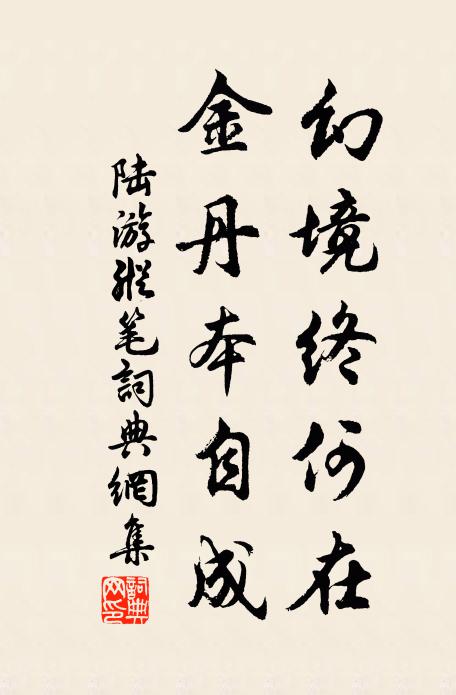 幻境终何在
金丹本自成
陆游纵笔詞典網集
詞典
网印